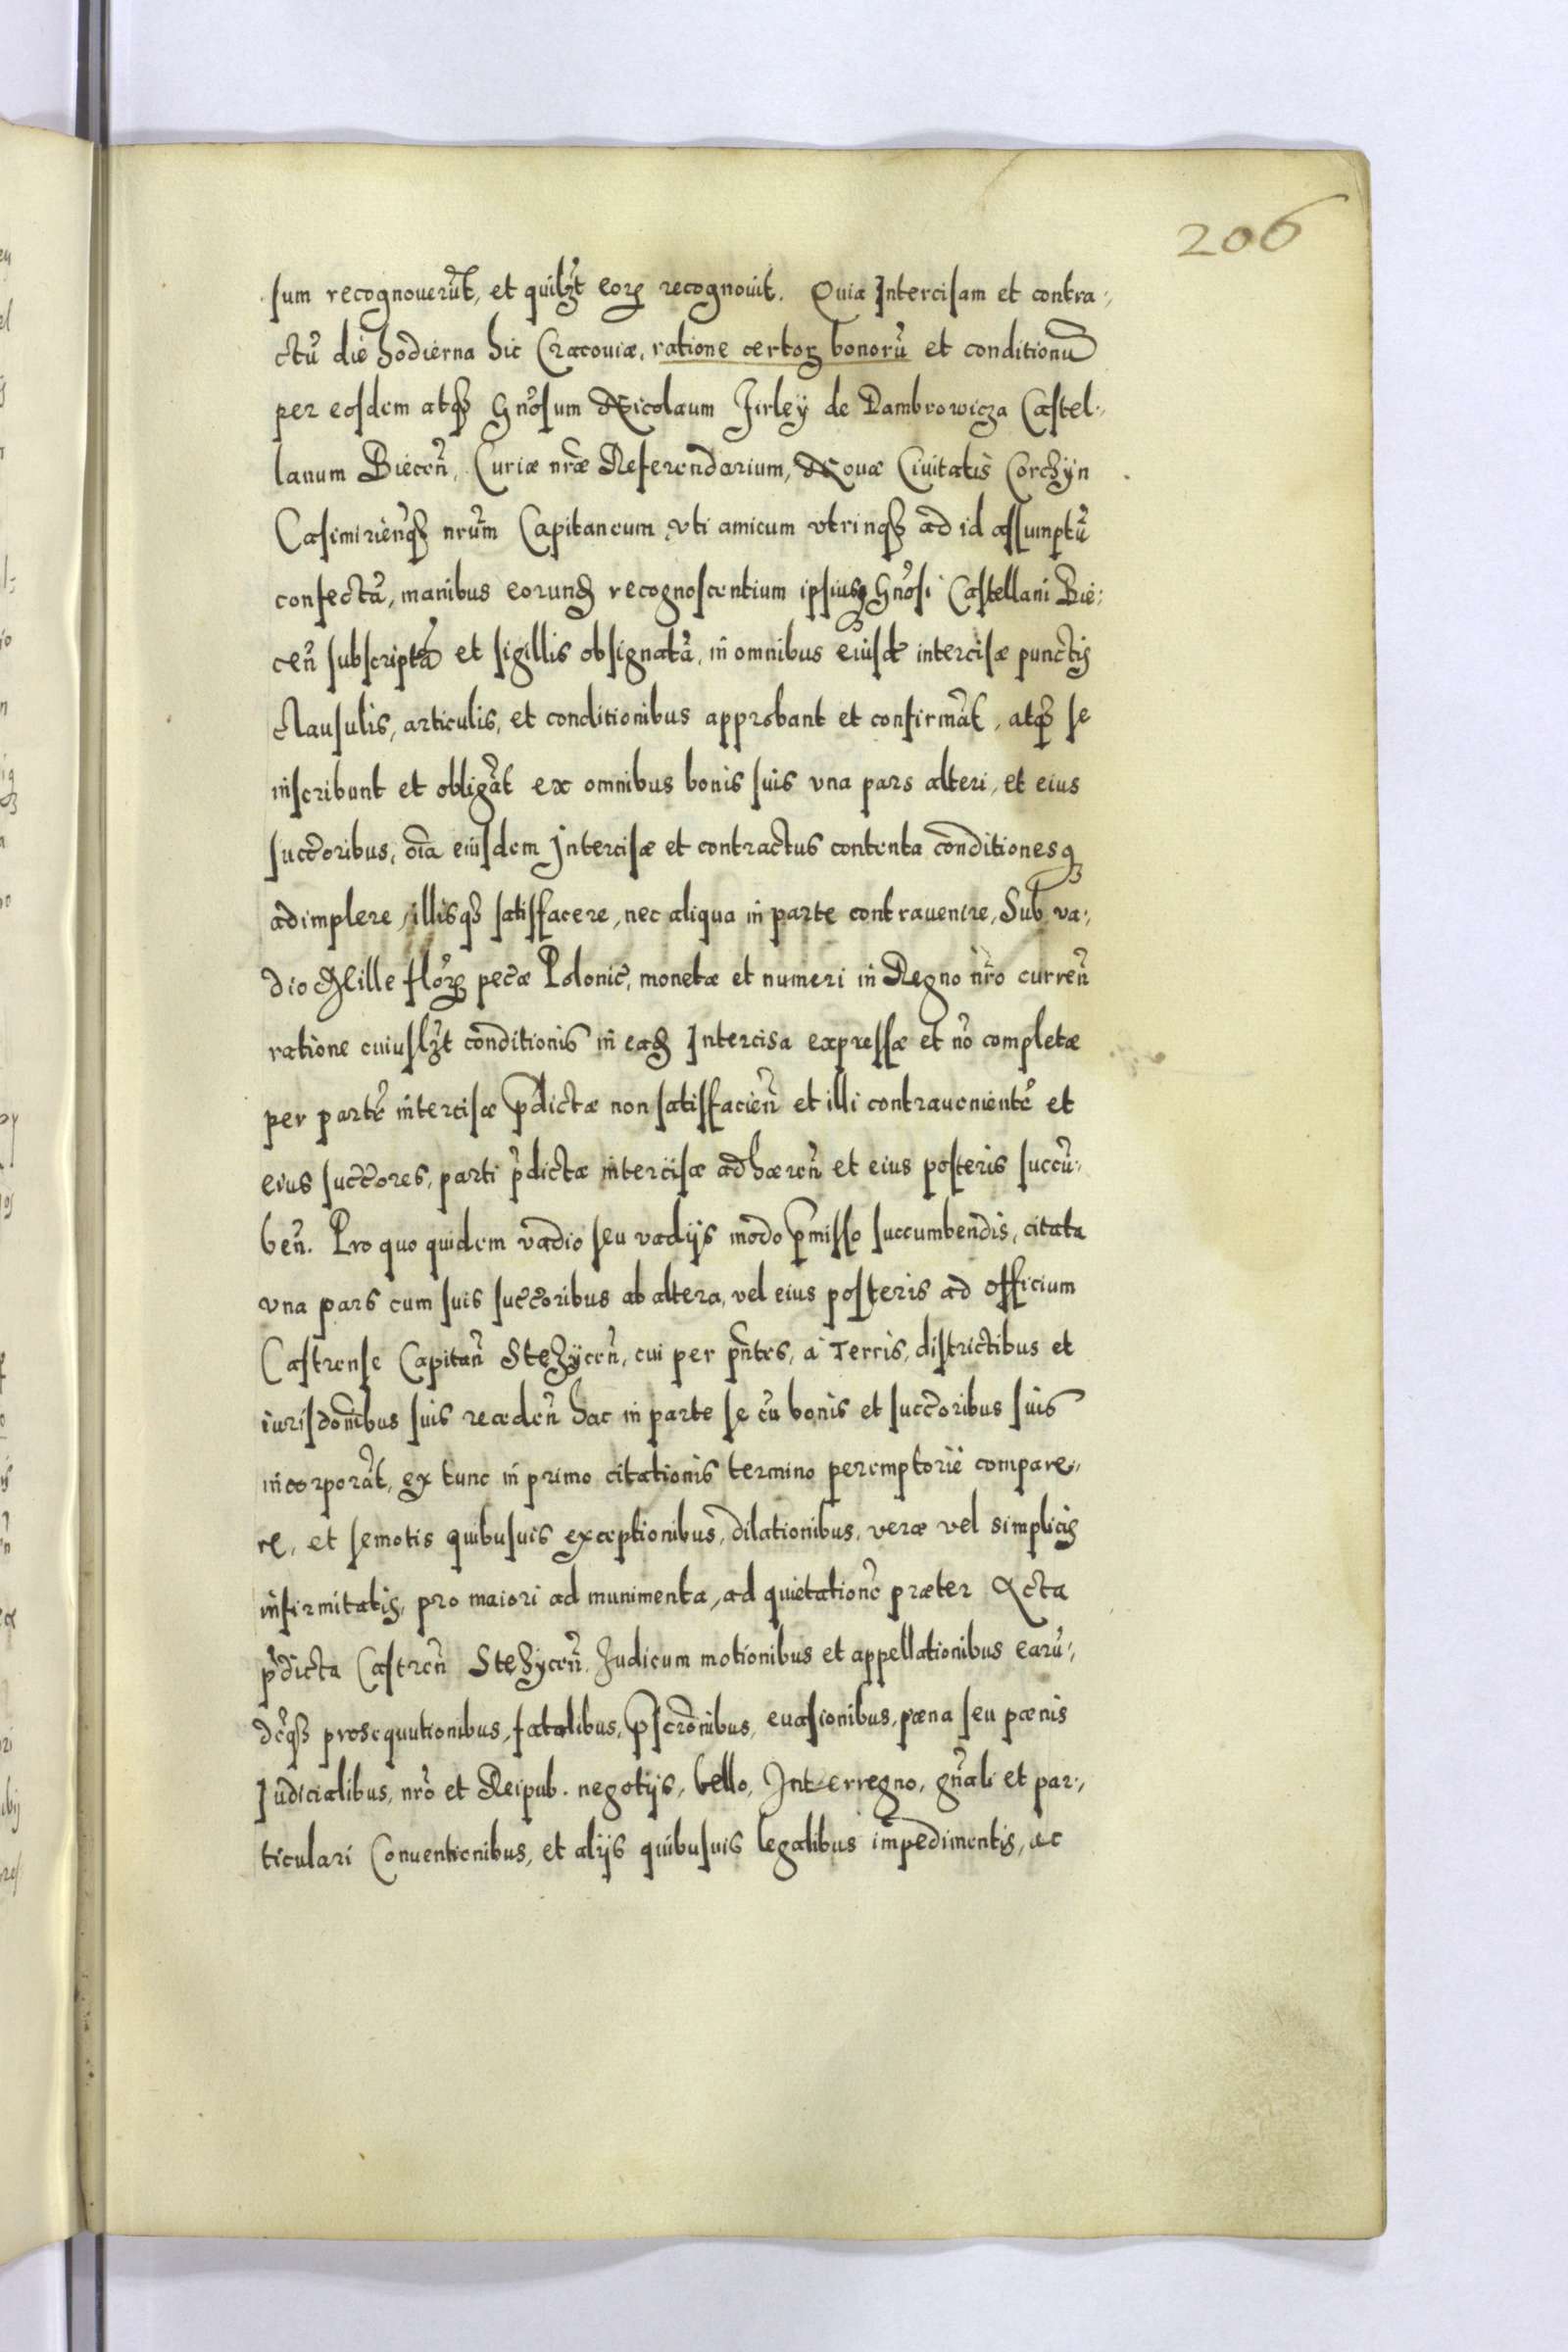 206
sum recognouerūt, et quilꝫt eorꝝ recognouit. Quia Intercisam et contra-
ctū die hodierna hic Cracouiæ, ratione certoꝝ bonorū et conditionū
per eosdem atqꝫ Gn̄osum Nicolaum Firleÿ de Dambrowicza Castel-
lanum Biecen̄, Curiæ nr̄æ Referendarium, Nouæ Ciuitatis Corchÿn
Casimirien̄qꝫ nrūm Capitaneum, vti amicum vtrinqꝫ ad id assumptū
confectā, manibus eorundꝫ recognoscentium ipsiusqꝫ Gn̄osi Castellani Bie-
cen̄ subscriptā et sigillis obsignatā, in omnibus eiusdē intercisæ punctis
clausulis, articulis, et conditionibus approbant et confirmāt, atqꝫ se
inscribunt et obligāt ex omnibus bonis suis vna pars alteri, et eius
succōribus, oīa eiusdem Intercisæ et contractus contenta conditionesqꝫ
adimplere, illisqꝫ satisfacere, nec aliqua in parte contrauenire, Sub va-
dio Mille florꝝ pec̄æ Polonic̄, monetæ et numeri in Regno nr̄o curren̄
ratione cuiuslꝫt conditionis in eadꝫ Intercisa expressæ et nō completæ
per partē intercisæ p̄dictæ non satisfacien̄ et illi contrauenientē et
eius succōres, parti p̄dictæ intercisæ adhæren̄ et eius posteris succū-
ben̄. Pro quo quidem vadio seu vadijs modo p̄misso succumbendis, citata
vna pars cum suis succōribus ab altera, vel eius posteris ad officium
Castrense Capitan̄ Stezÿcen̄, cui per pn̄tes, a Terris, districtibus et
iurisdōnibus suis receden̄ hac in parte se cū bonis et succōribus suis
incorporāt, ex tunc in primo citationis termino peremptorie compare-
re, et semotis quibusuis exceptionibus, dilationibus, veræ vel simplicis
infirmitatis, pro maiori ad munimenta, ad quietationē præter Acta
p̄dicta Castren̄ Stezÿcen̄. Iudicum motionibus et appellationibus earū-
dēqꝫ prosequutionibus, fatalibus, p̱scrōnibus, euasionibus, pæna seu pænis
Iudicialibus, nr̄o et Reipub. negotijs, bello, Interregno, gn̄ali et par-
ticulari Conuentionibus, et alijs quibusuis legalibus impedimentis, ac